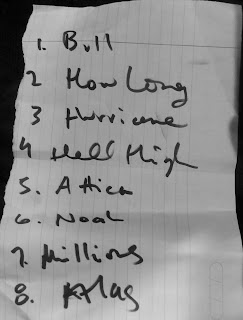 1. Bull
2 How Long
3 Hurricane
4 Hell High
5. Attica
6. Noah
7. Millions
8. Atlas